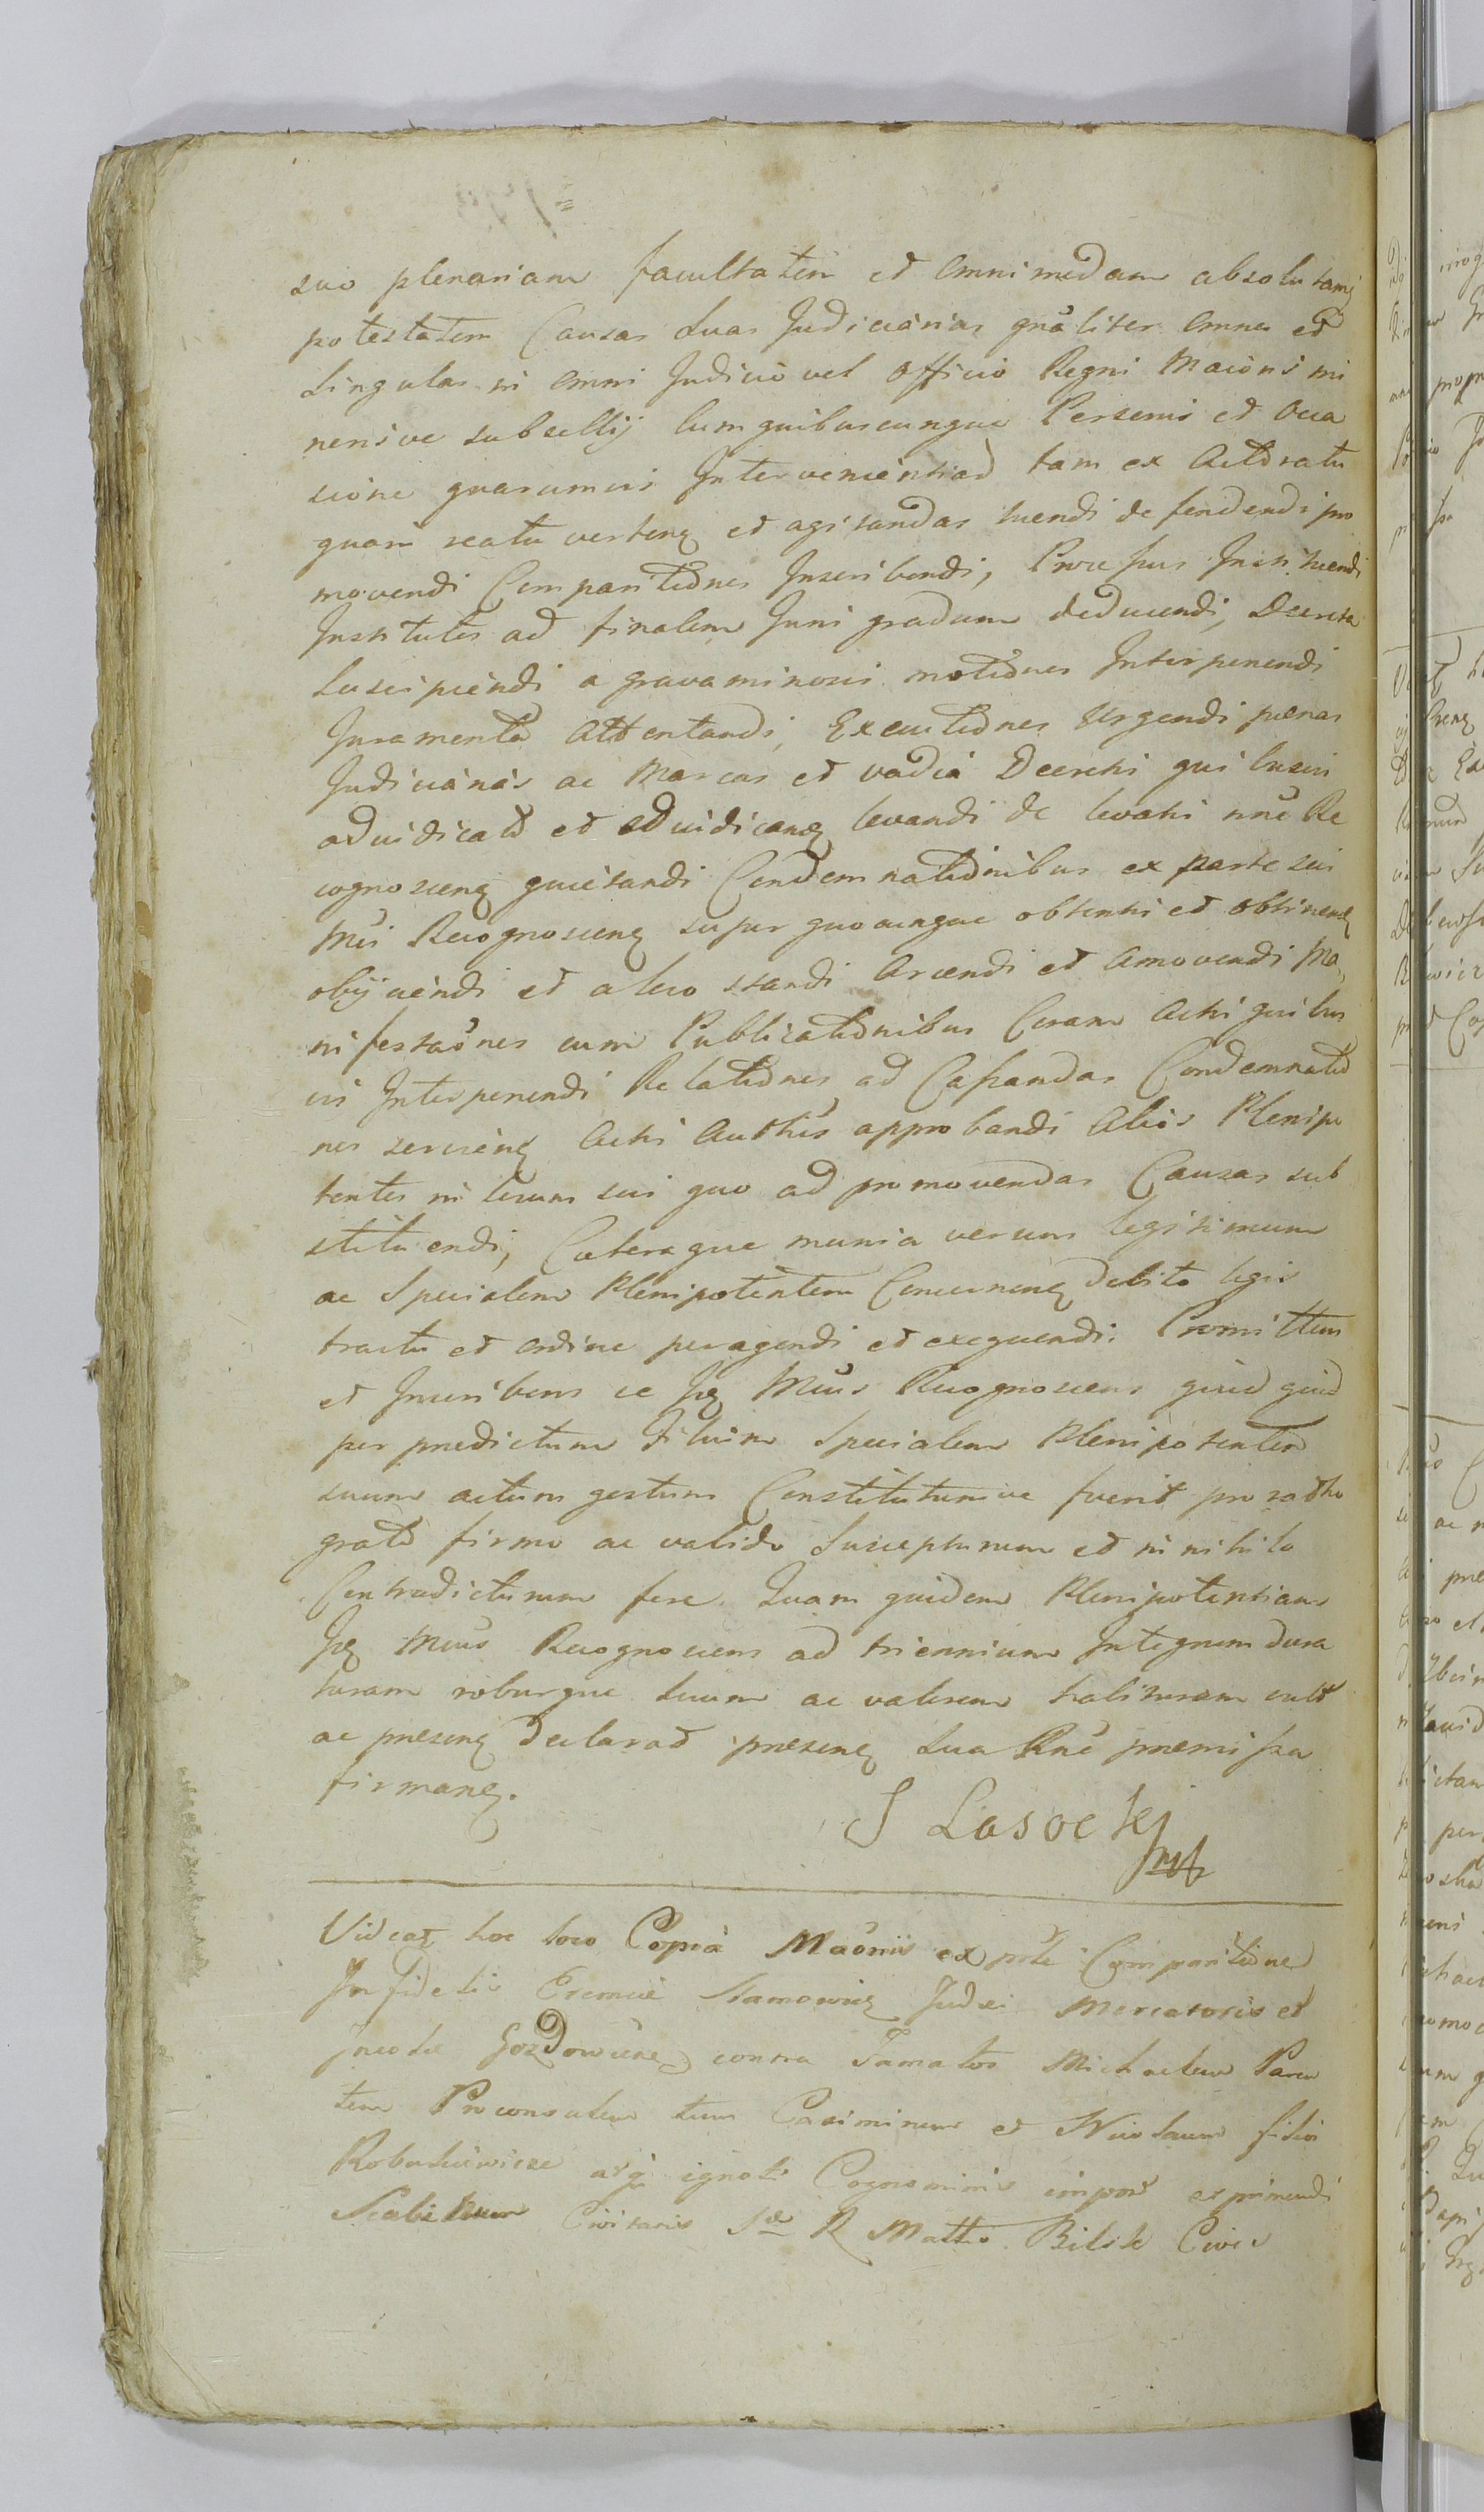 suo plenariam facultatem et omnimodam absolutamq
potestatem Causas suas Judiciarias gnaliter omnes et
singulas in omni Judicio vel Officio Regni Maioris mi
norisve subsellij cum quibuscunque Personis et occa
sione quarumvis Intervenientiad tam ex Actoratu
quam reatu verten et agitandas tuendi defendendi pro
movendi Comparitiones Inscribendi, Processus Instituendi
Institutos ad finalem Juris gradum deducendi, Decreta
suscipiendi a gravaminosis motiones Interponendi
Juramenta Attentandi, Executiones Urgendi pœnas
Judiciarias ac Marcas et vadia Decretis quibusvis
adiudicat et adiudican levandi de levatis nne Re
cognoscen quietandi Condemnationibus ex parte sui
Mci Recognoscen super quocunque obtentis et obtinend
obijciendi et a loco standi Arcendi et Amovendi Ma,
nifestaones cum Publicationibus Coram Actis quibus
vis Interponendi Relationes ad Cassandas Condemnatio
nes servien Actis Authcis approbandi Alios Plenipo
tentes in locum sui quo ad promovendas Causas sub
stituendi, Cæteraque munia verum legitimum
ac Specialem Plenipotentem Concernen debito legis
tractu et ordine peragendi et exequendi. Promittens
et Inscribens se Ipe Mcus Recognoscens quid quid
per prædictum Filium Specialem Plenipotentem
suum actum gestum Constitutumve fuerit pro ratho
grato firmo ac valido Suscepturum et in nihilo
Contradicturum fore. Quam quidem Plenipotentiam
Ipe Mcus Recognoscens ad triennium Integrum dura
turam roburque suum ac valorem habituram vult
ac præsen declarat præsen sua Rne præmissa
firman.
S Lasocki
mp
Videat hoc loco Copia Maonis ex prte Comparitione
Infidelis Judæi Mercatoris et
Incolæ contra Famatos Michaelem Paren
tem Proconsulem tum Casimirum et Nicolaum filios
ignoti Cognominis exprimendi
Scabinum Civitatis R Civis